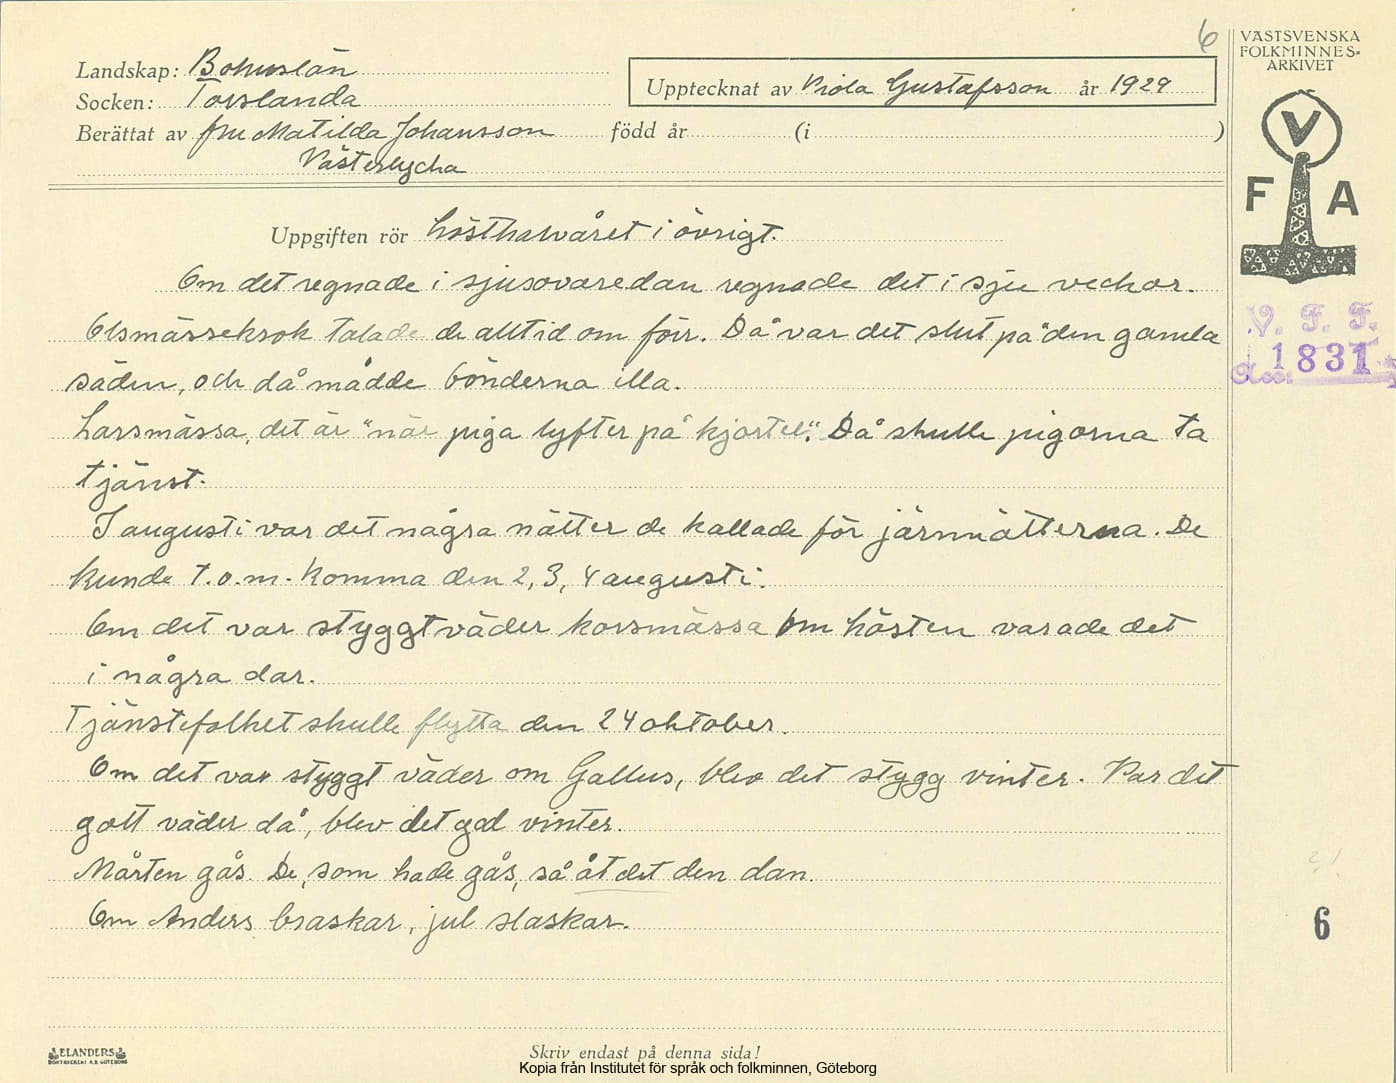 6
Landskap: Bohuslän
Socken: Torslanda
Upptecknat av Viola Gustafsson år 1929
Berättat av fru Matilda Johansson född år (i )
Västerlycka
VÄSTSVENSKA
FOLKMINNES-
ARKIVET
V
F A
V. F. F.
Acc: 1831
Uppgiften rör hösthalvåret i övrigt.
Om det regnade i sjusovaredan regnade det i sju veckor.
Olsmässekrok talade de alltid om förr. Då var det slut på den gamla
säden, och då mådde bönderna illa.
Larsmässa, det är "när piga lyfter på kjortel". Då skulle pigorna ta
tjänst.
I augusti var det några nätter de kallade för järnnätterna. De
kunde t.o.m. komma den 2, 3, 4 augusti.
Om det var styggt väder korsmässa om hösten varade det
i några dar.
Tjänstefolket skulle flytta den 24 oktober.
Om det var styggt väder om Gallus, blev det stygg vinter. Var det
gott väder då, blev det god vinter.
Mårten gås. De, som hade gås, så åt det den dan.
Om Anders braskar, jul slaskar.
6
ELANDERS
BOKTRYCKERI A.B. GÖTEBORG
Skriv endast på denna sida!
Kopia från Institutet för språk och folkminnen, Göteborg